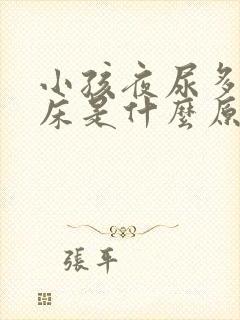 小孩夜尿多
床是什麼原
張平